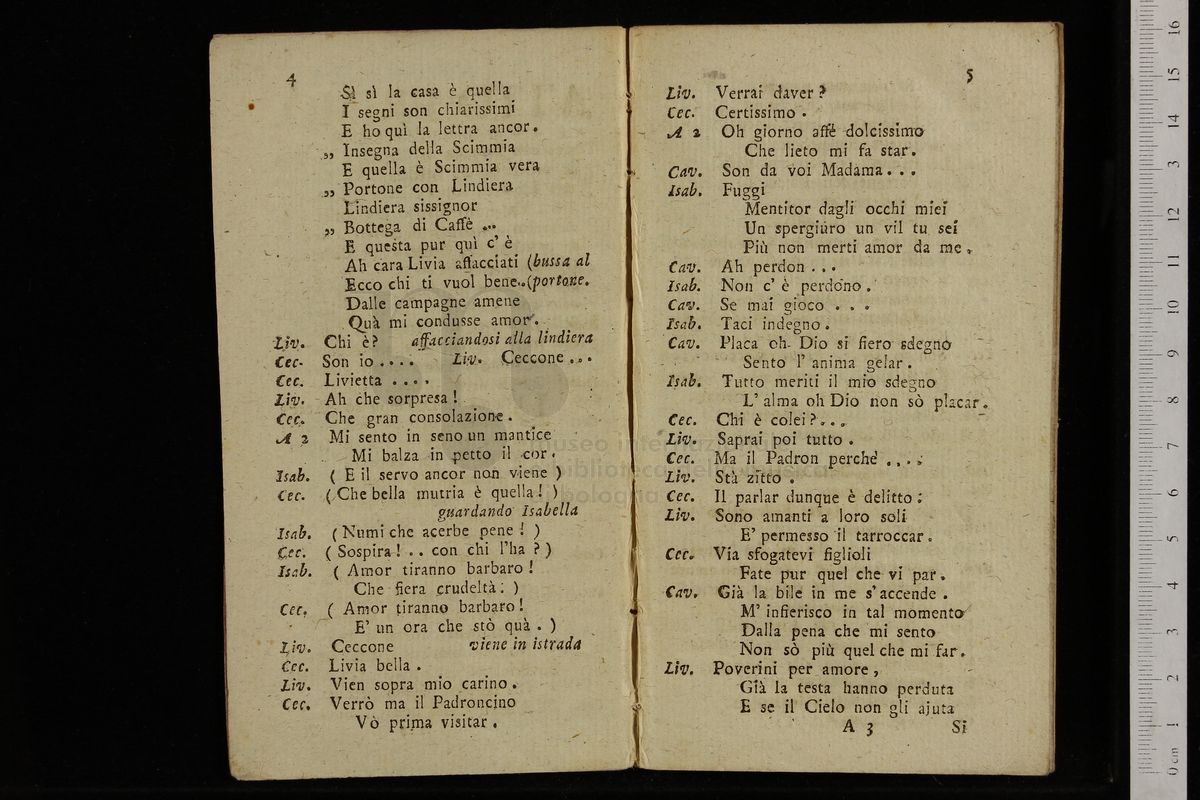 4
Si sì la casa è quella
I segni son chiarissimi
E ho quì la lettra ancor.
„ Insegna della Scimmia
E quella è Scimmia vera
„ Portone con Lindiera
Lindiera sissignor
„ Bottega di Caffè ...
E questa pur quì c' è
Ah cara Livia affacciati (bussa al
Ecco chi ti vuol bene..(portone.
Dalle campagne amene
Quà mi condusse amor.
Liv. Chi è? affacciandosi alla lindiera
Cec. Son io .... Liv. Ceccone ...
Cec. Livietta ....
Liv. Ah che sorpresa!
Cec. Che gran consolazione.
A 2 Mi sento in seno un mantice
Mi balza in petto il cor.
Isab. ( E il servo ancor non viene )
Cec. (Che bella mutria è quella! )
guardando Isabella
Isab. (Numi che acerbe pene! )
Cec. (Sospira! .. con chi l'ha ?)
Isab. ( Amor tiranno barbaro!
Che fiera crudeltà: )
Cec. ( Amor tiranno barbaro!
E' un ora che stò quà . )
Liv. Ceccone viene in istrada
Cec. Livia bella .
Liv. Vien sopra mio carino .
Cec. Verrò ma il Padroncino
Vò prima visitar .
5
Liv. Verrai daver?
Cec. Certissimo .
A 2 Oh giorno affè dolcissimo
Che lieto mi fa star.
Cav. Son da voi Madama...
Isab. Fuggi
Mentitor dagli occhi miei
Un spergiuro un vil tu sei
Più non merti amor da me.
Cav. Ah perdon ...
Isab. Non c' è perdono .
Cav. Se mai gioco ...
Isab. Taci indegno.
Cav. Placa oh Dio si fiero sdegno
Sento l' anima gelar.
Isab. Tutto meriti il mio sdegno
L' alma oh Dio non sò placar.
Cec. Chi è colei?...
Liv. Saprai poi tutto .
Cec. Ma il Padron perchè ....
Liv. Stà zitto .
Cec. Il parlar dunque è delitto:
Liv. Sono amanti a loro soli
E' permesso il tarroccar.
Cec. Via sfogatevi figlioli
Fate pur quel che vi par.
Cav. Già la bile in me s' accende .
M' infierisco in tal momento
Dalla pena che mi sento
Non sò più quel che mi far.
Liv. Poverini per amore,
Già la testa hanno perduta
E se il Cielo non gli ajuta
A 3 Si